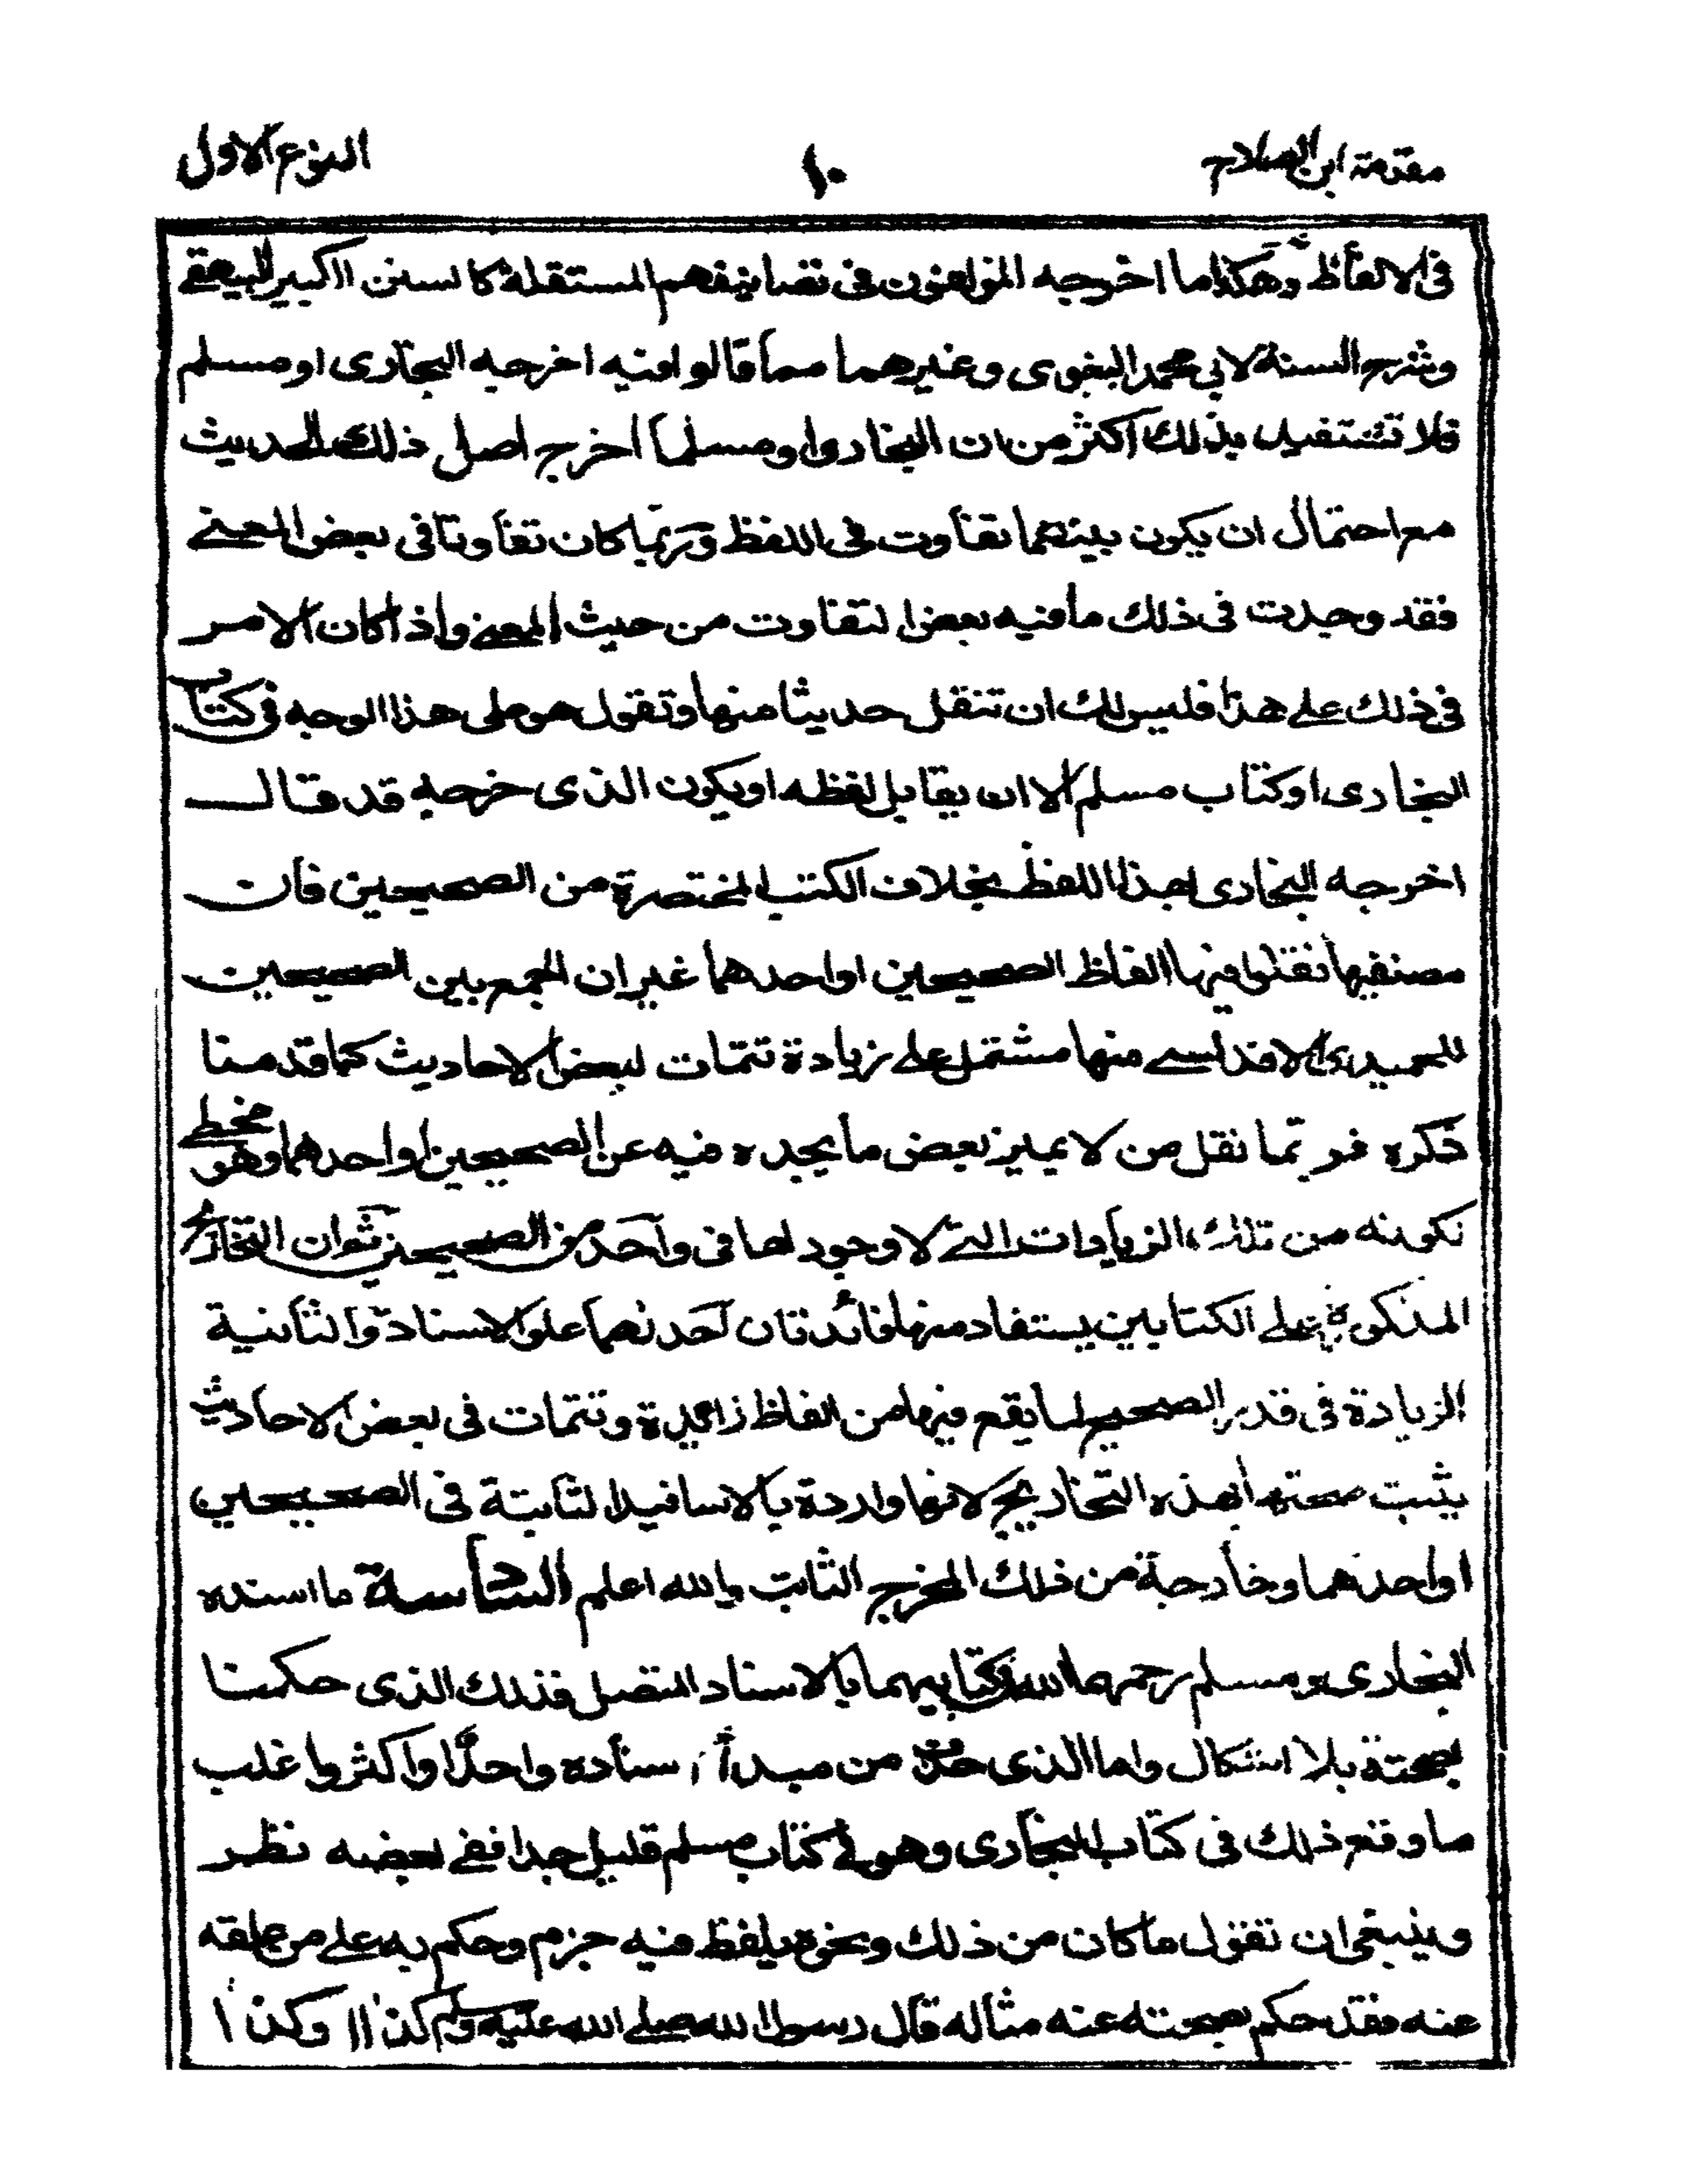 مقدمة ابن الصلاح
١٠
النوع الاول
فى الالفاظ وهكذا ما اخرجه المؤلفون فى تصانيفهم المستقلة كالسنن الكبير للبيهقے
وشرح السنة لابي محمد البغوى وغيرهما مما قالوا فيه اخرجه البخارى او مسلم
فلا تستفيد بذلك اكثر من ان البخارى او مسلما اخرج اصل ذلك الحديث
مع احتمال ان يكون بينهما تفاوت فى اللفظ وربما كان تفاوتا فى بعض المعنے
فقد وجدت فى ذلك ما فيه بعض التفاوت من حيث المعنے واذا كان الامر
فى ذلك علے هذا فليس لك ان تنقل حديثا منها وتقول هو على هذا الوجه فى كتاب
البخارى او كتاب مسلم الا ان يقابل لفظه او يكون الذى خرجه قد قال
اخرجه البخارى بهذا اللفظ بخلاف الكتب المختصرة من الصحيحين فان
مصنفيها نقلوا فيها الفاظ الصحيحين او احدهما غير ان الجمع بين الصحيحين
للحميدى الاندلسے منها مشتمل علے زيادة تتمات لبعض الاحاديث كما قدمنا
ذكره فربما نقل من لا يميز بعض ما يجده فيه عن الصحيحين او احدهما وهو مخطے
لكونه من تلك الزيادات التے لا وجود لها فى واحد من الصحيحين ثم ان التخاريج
المذكورة علے الكتابين يستفاد منها فائدتان احدٰىهما علو الاسناد والثانية
الزيادة فى قدر الصحيح لما يقع فيها من الفاظ زائدة وتتمات فى بعض الاحاديث
يثبت صحتها بهذه التخاريج لانها واردة بالاسانيد الثابتة فى الصحيحين
او احدهما وخارجة من ذلك المخرج الثابت والله اعلم السادسة ما اسنده
البخارى ومسلم رحمهما الله فى كتابيهما بالاسناد المتصل فذلك الذى حكمنا
بصحته بلا اشكال واما الذى حذف من مبدأ اسناده واحدا واكثر واغلب
ما وقع ذلك فى كتاب البخارى وهو فے كتاب مسلم قليل جدا ففے بعضه نظر
وينبغى ان تقول ما كان من ذلك ونحوه بلفظ فيه جزم وحكم به علے من علقه
عنه فقد حكم بصحته عنه مثاله قال رسول الله صلے الله عليه وسلم كذا وكذا